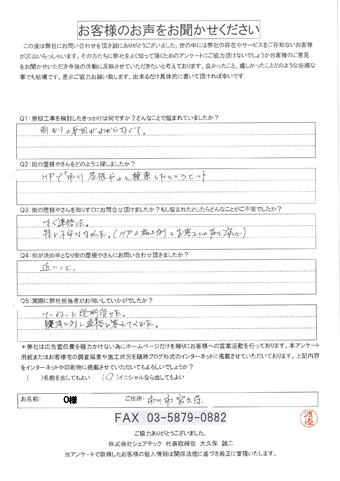 お客様のお声をお聞かせください
この度は弊社にお問い合わせを頂き誠にありがとうございました。世の中には弊社の存在やサービスをご存知ないお客様
が沢山いらっしゃいます。その方たちに弊社をよく知って頂くためのアンケートにご協力頂けないでしょうかお客様のご意見
をお聞かせいただき今後の活動に反映させていただきたいと考えております。良かったこと、嬉しかったことどのような些細な
事でも結構です。是非ご協力お願い致します。出来るだけ具体的に書いて頂ければ幸いです
Q1:屋根工事を検討したきっかけは何ですか?どんなことで悩まれていましたか?
雨もりの原因がわからなくて。
Q2:街の屋根やさんをどのように探しましたか?
HPで「市川 屋根や」と検索したらヒット
Q3:街の屋根やさんを知りすぐにお問合せ頂けましたか?もし悩まれたとしたらどんなことがご不安でしたか?
すぐ連絡した。
特に不安はなかった。(HPの施工例
Q4:何が決め手となり街の屋根やさんにお問い合わせ頂きましたか?
近いこと。
Q5:実際に弊社担当者がお伺いしていかがでしたか?
ていねいに説明頂けた。
＊弊社は広告宣伝費を極力かけない為にホームページだけを頼りにお客様への営業活動を行っております。本アンケート
用紙またはお客様宅の調査風景や施工状況を随時ブログ形式のインターネットに掲載させていただいております。上記内容
をインターネットや印刷物に掲載させていただいてもよろしいでしょうか?
( )名前を出してもよい (○)イニシャルなら出してもよい
お名前: O様 ご住所: 市川市宮久保
FAX 03-5879-0882
ご協力ありがとうございました。
株式会社シェアテック 代表取締役 大久保 誠二
当アンケートで取得したお客様の個人情報は関係法規に基づき厳正に管理いたします。